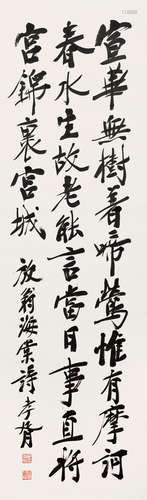 宣華無樹着啼鶯惟有摩訶
春水生故老能言當日事直將
宮錦裹宮城 放翁海棠詩 孝胥